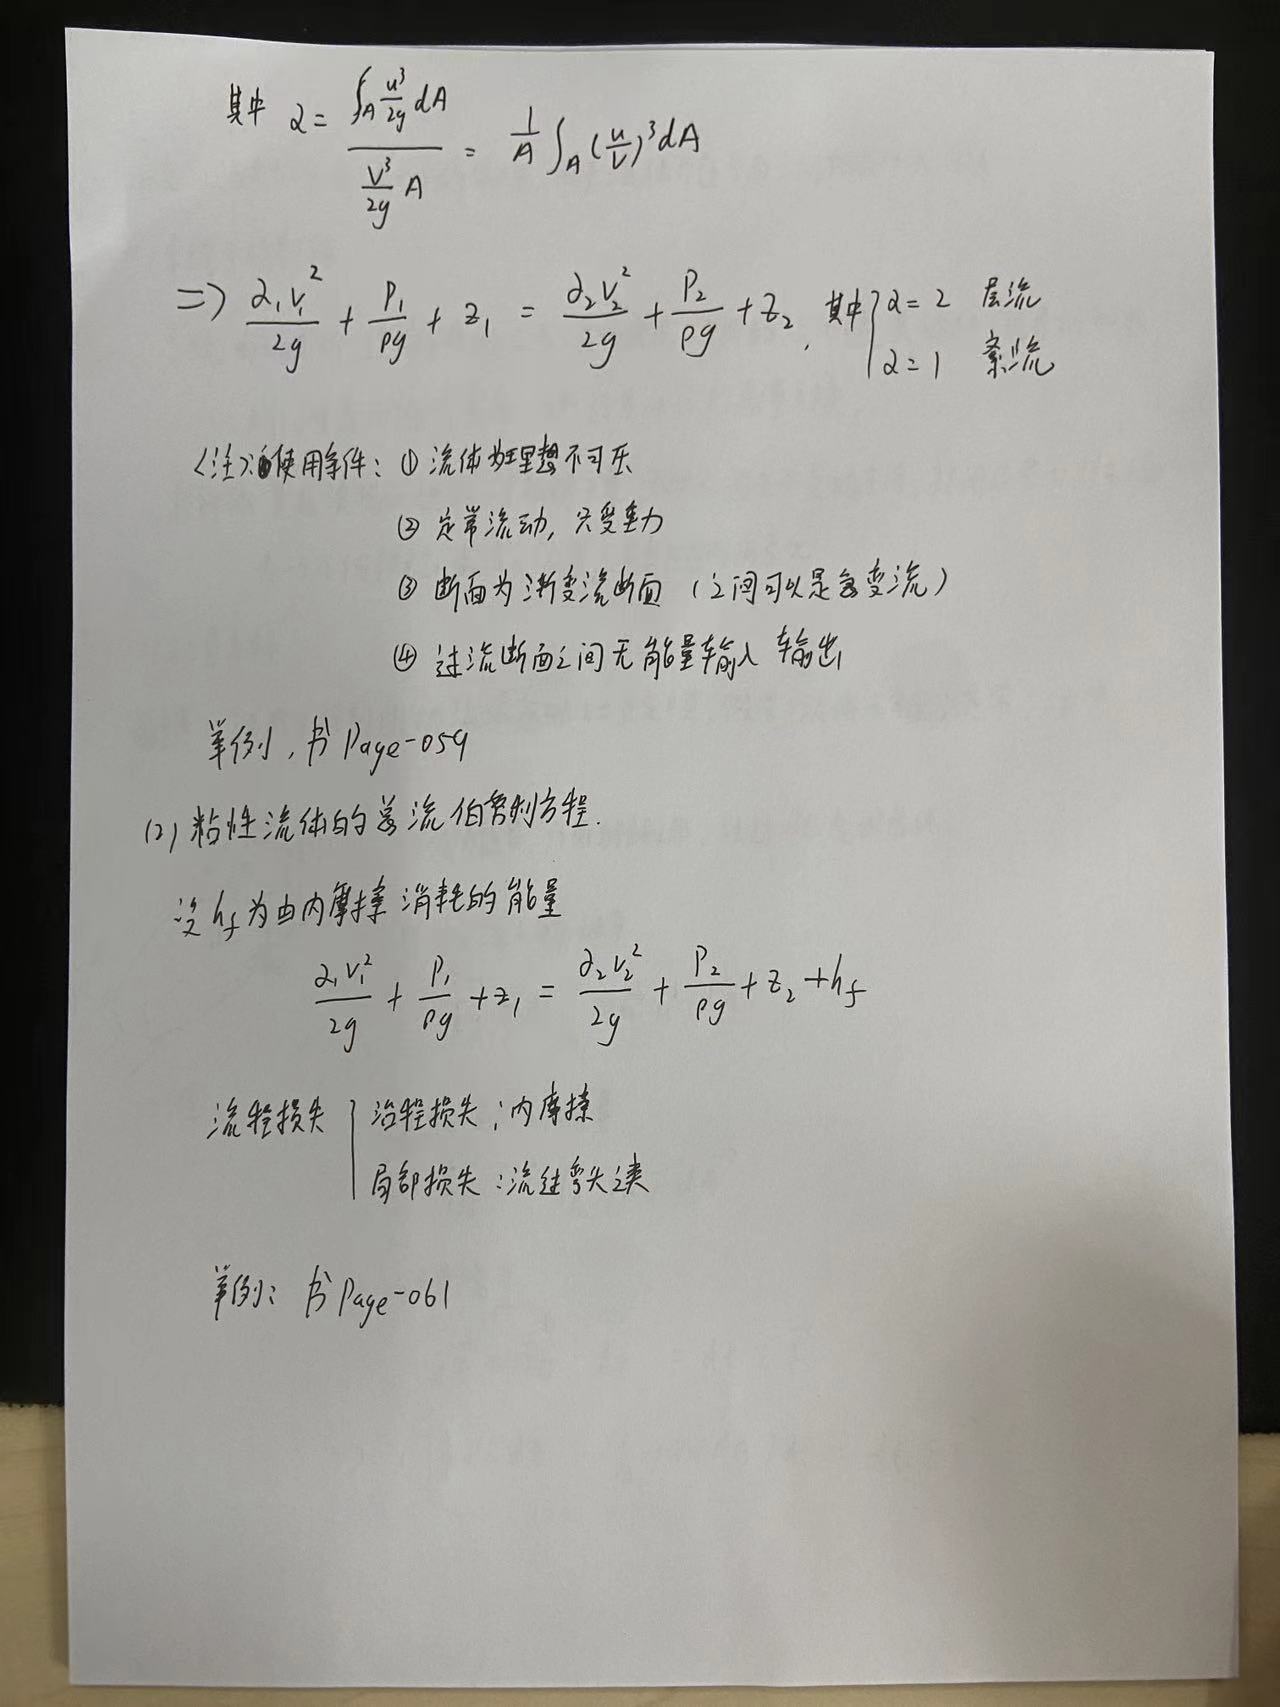 其中 α = ∫_A u³/2g dA / (V³/2g A) = 1/A ∫_A (u/V)³ dA
=> α₁V₁²/2g + P₁/ρg + z₁ = α₂V₂²/2g + P₂/ρg + z₂, 其中 { α=2 层流
α=1 紊流
<注>: 使用条件: ① 流体为理想不可压
② 定常流动, 只受重力
③ 断面为渐变流断面 (之间可以是急变流)
④ 过流断面之间无能量输入 输出
举例, 书 Page-059
(2) 粘性流体的总流伯努利方程.
设 h_f 为由内摩擦消耗的能量
α₁V₁²/2g + P₁/ρg + z₁ = α₂V₂²/2g + P₂/ρg + z₂ + h_f
流程损失 { 沿程损失: 内摩擦
局部损失: 流过弯头之类
举例: 书 Page-061